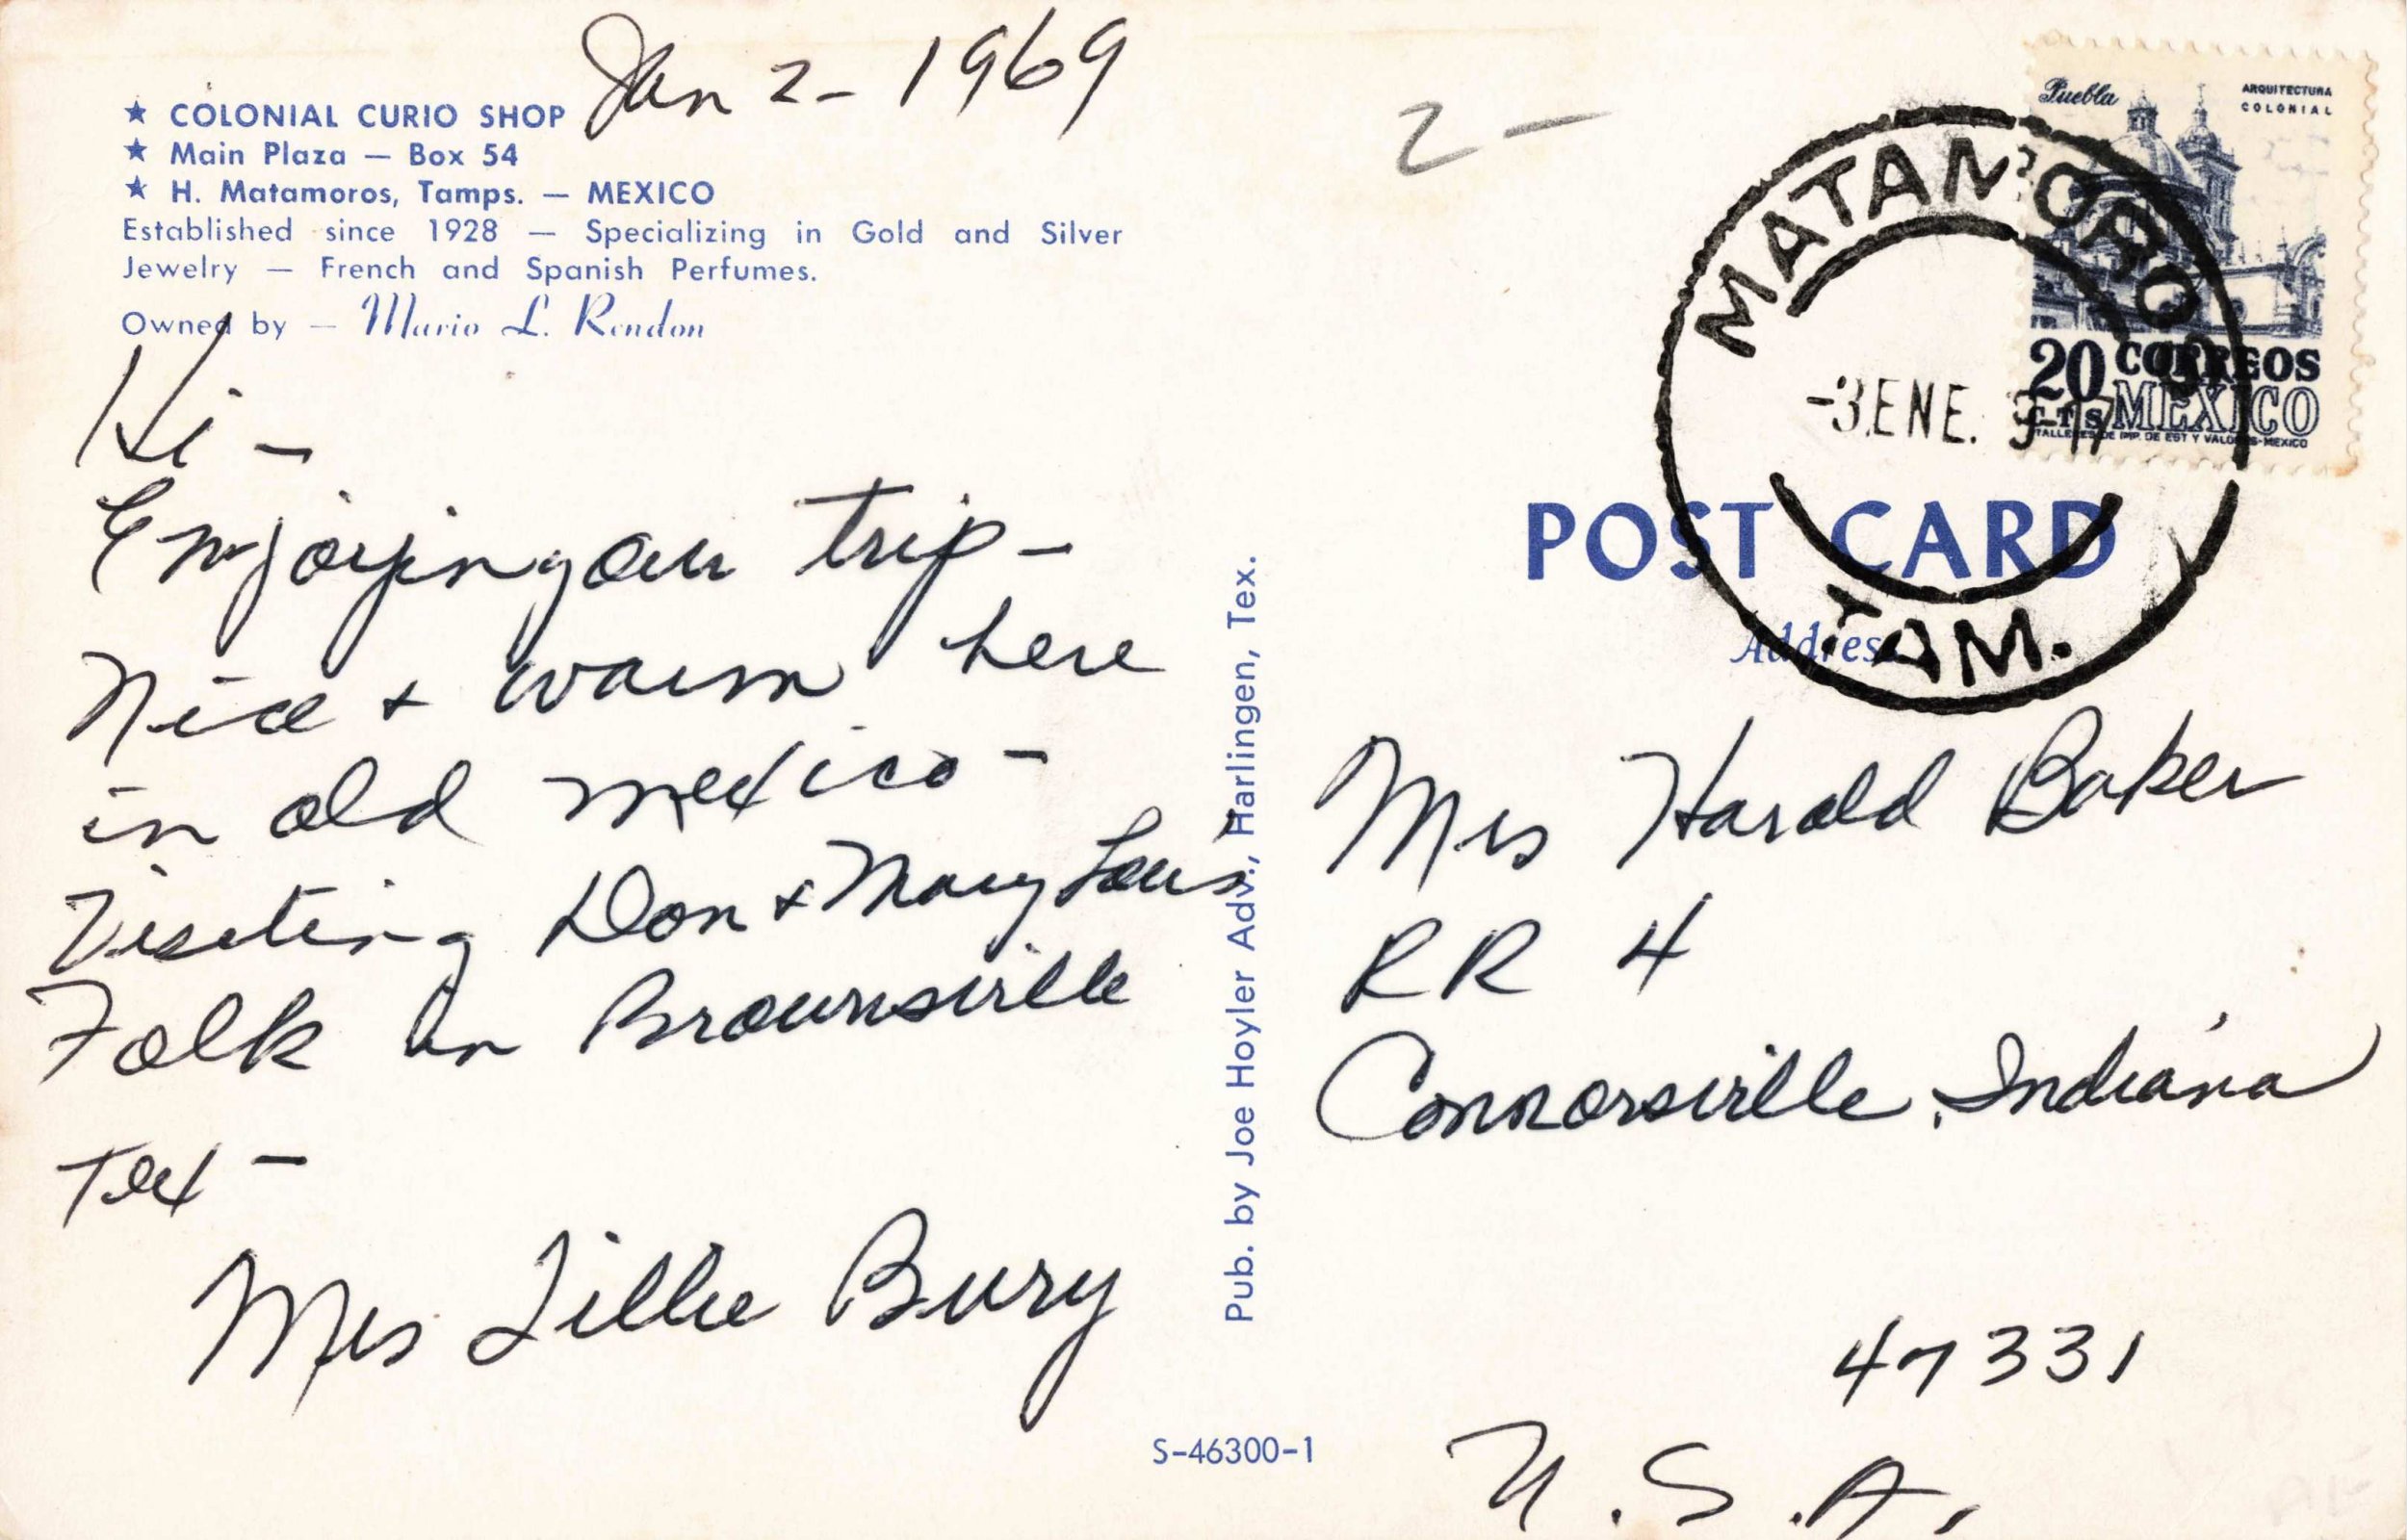 Jan 2- 1969
★ COLONIAL CURIO SHOP
★ Main Plaza — Box 54
★ H. Matamoros, Tamps. — MEXICO
Established since 1928 — Specializing in Gold and Silver
Jewelry — French and Spanish Perfumes.
Owned by — Mario L. Rendon
Hi -
Enjoying our trip -
Nice + warm here
in old mexico -
Visiting Don + Mary Lou's
Folk in Brownsville
Tex -
Mrs Lillie Bury
Pub. by Joe Hoyler Adv., Harlingen, Tex.
S-46300-1
2 -
Puebla
ARQUITECTURA
COLONIAL
20 CTS
CORREOS
MEXICO
TALLERES DE IMP. DE EST Y VALORES-MEXICO
MATAMOROS
-3 ENE.
TAM.
POST CARD
Address
Mrs Harold Baker
RR 4
Connorsville, Indiana
47331
U.S.A.